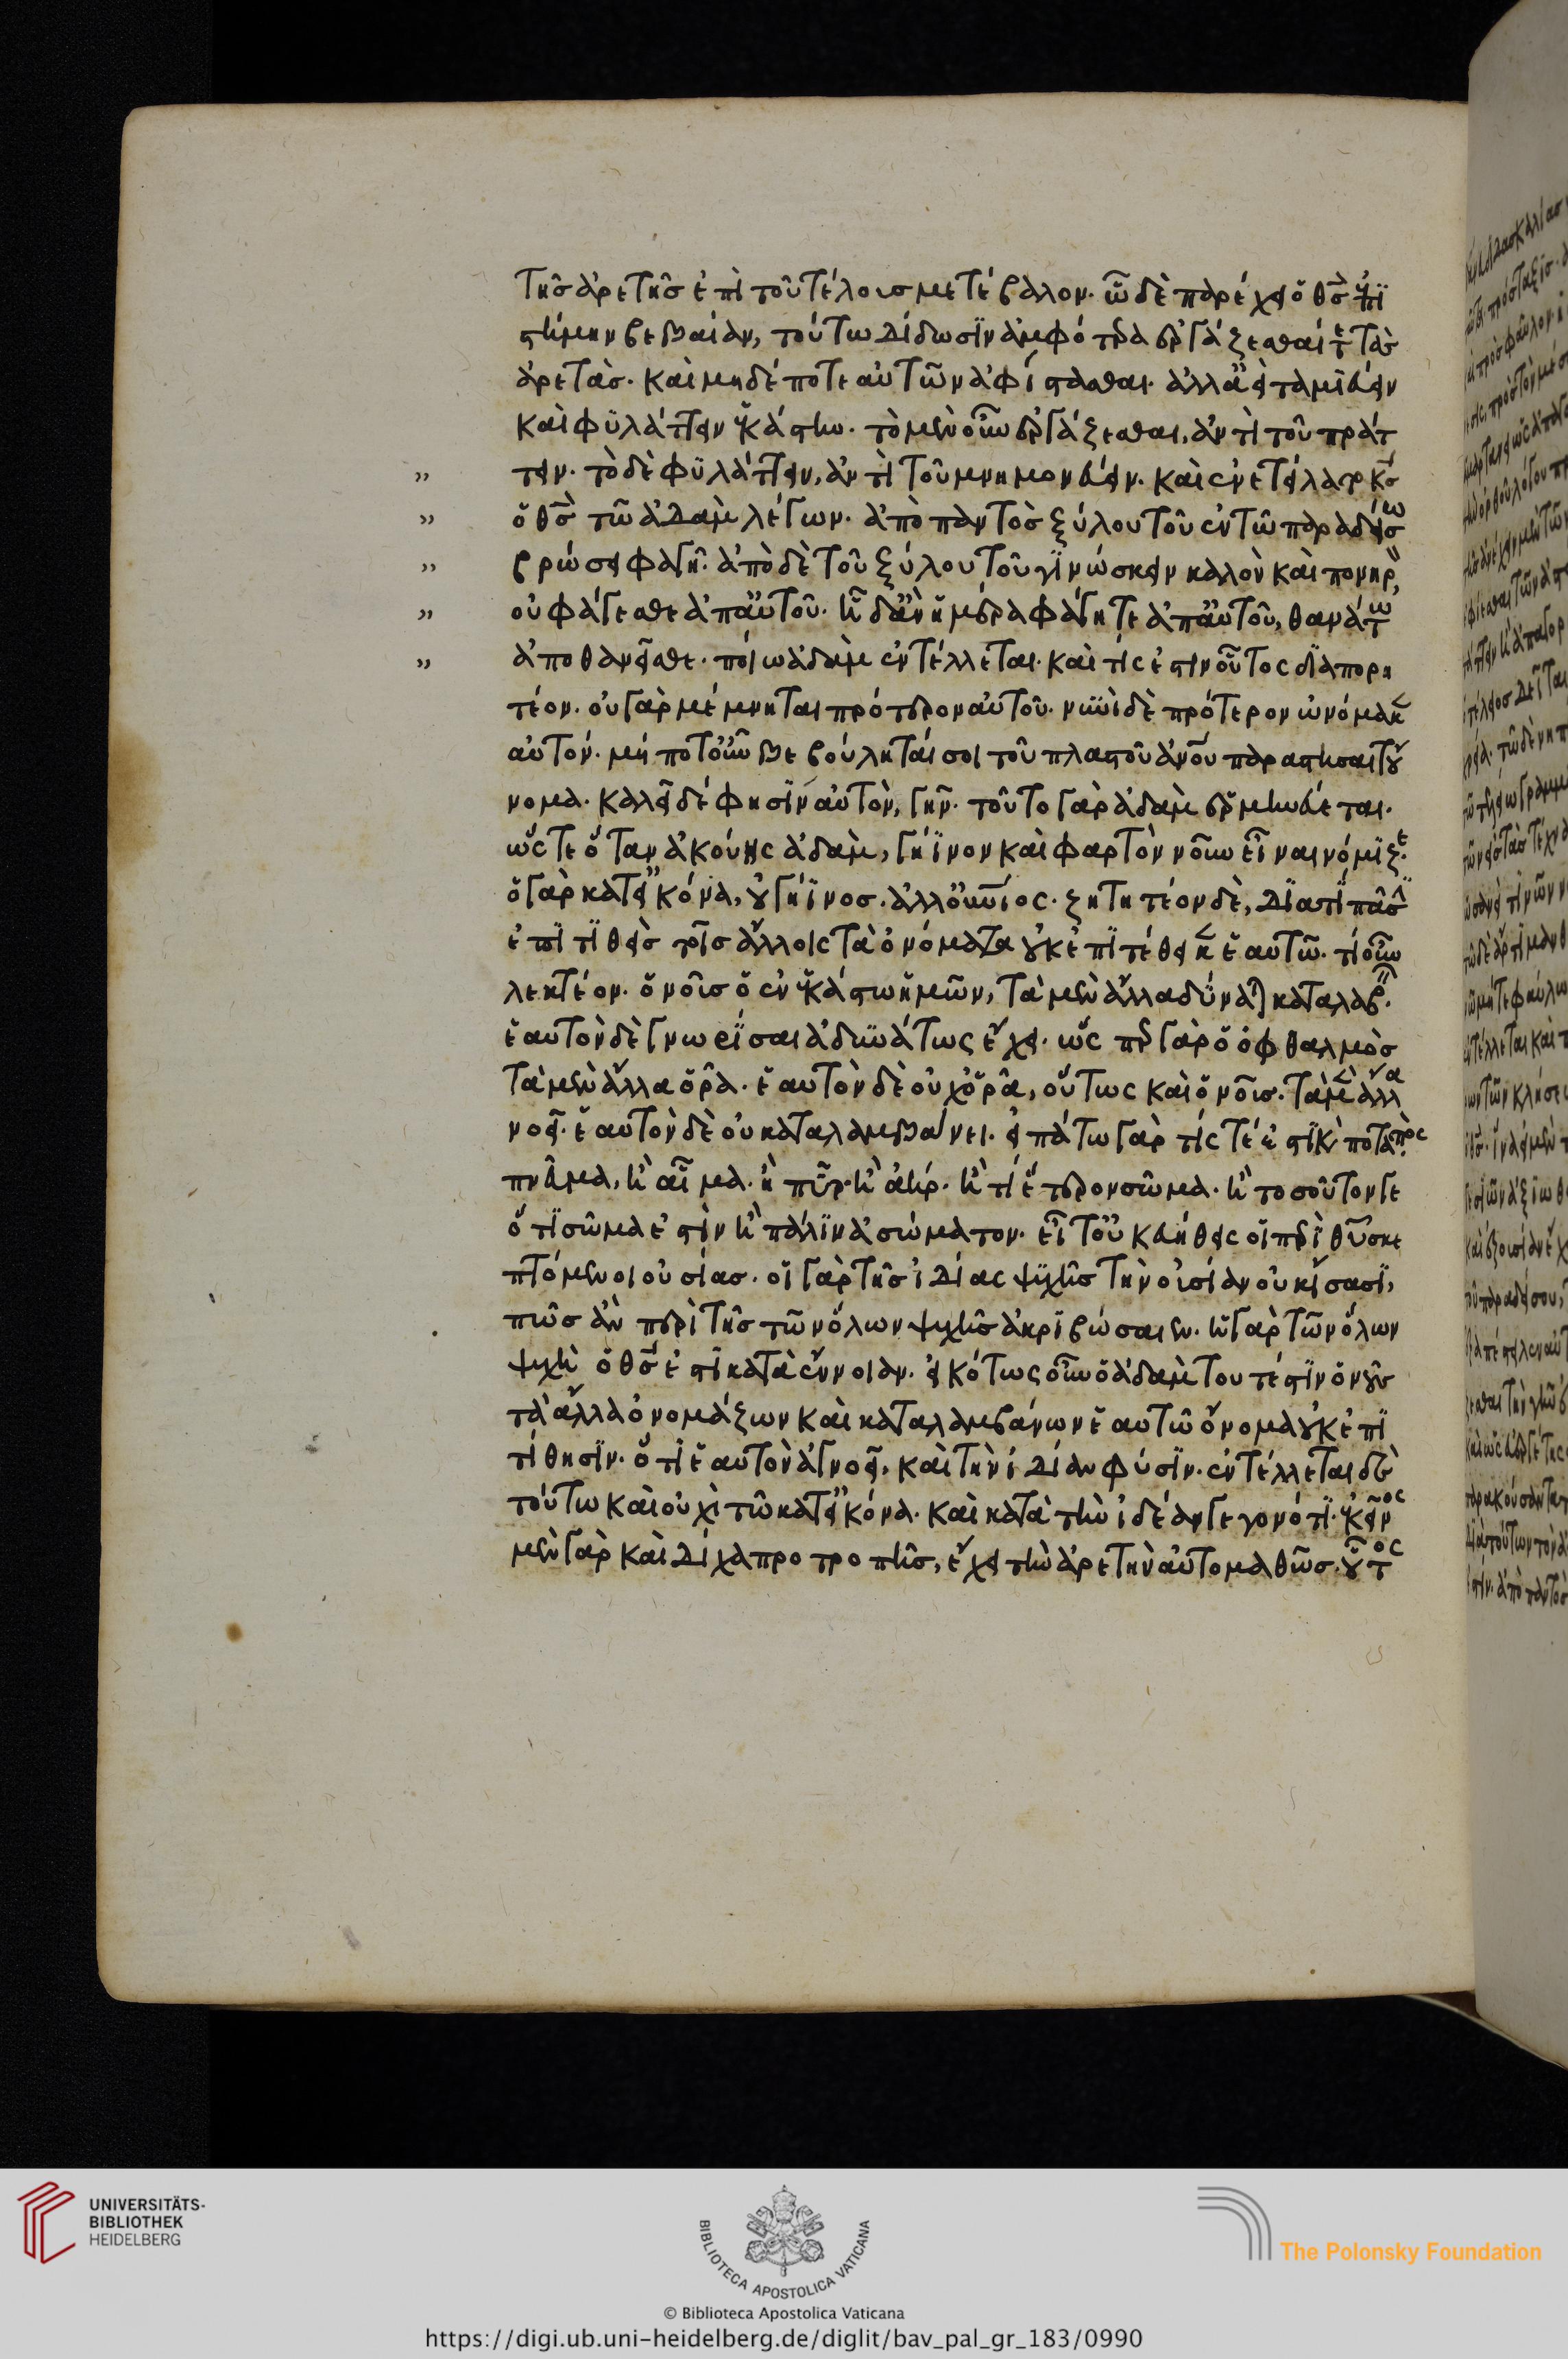 τῆς ἀρετῆς ἐπὶ τοῦ τέλους μετέβαλον· ᾧ δὲ παρέχει ὁ θς ἐπι
στήμην βεβαίαν, τούτω δίδωσιν ἀμφότερα ἐργάζεσθαί τε τὰς
ἀρετὰς· καὶ μηδέποτε αὐτῶν ἀφίστασθαι· ἀλλ' ἀεὶ ταμιεύειν
καὶ φυλάττειν ἑκάστην· τὸ μὲν οὖν ἐργάζεσθαι, ἀντὶ τοῦ πράτ
τειν· τὸ δὲ φυλάττειν, ἀντὶ τοῦ μνημονεύειν· καὶ ἐνετείλατο κς
ὁ θς τῶ ἀδὰμ λέγων· ἀπὸ παντὸς ξύλου τοῦ ἐν τῶ παραδείσω
βρώσει φαγῆ· ἀπὸ δὲ τοῦ ξύλου τοῦ γινώσκειν καλὸν καὶ πονηρὸν,
οὐ φάγεσθε ἀπ' αὐτοῦ· ἧ δ' ἂν ἡμέρα φάγητε ἀπ' αὐτοῦ, θανάτω
ἀποθανεῖσθε· ποίω ἀδὰμ ἐντέλλεται· καὶ τίς ἐστιν οὗτος διαπορη
τέον· οὐ γὰρ μέμνηται πρότερον αὐτοῦ· νυνὶ δὲ πρότερον ὠνόμακεν
αὐτόν· μή ποτ' οὖν βεβούληταί σοι τοῦ πλαστοῦ ἀνου παραστῆσαι τοὔ
νομα· κάλει δέ φησιν αὐτὸν, γῆν· τοῦτο γὰρ ἀδὰμ ἑρμηνεύεται·
ὥς τε ὅταν ἀκούῃς ἀδὰμ, γήϊνον καὶ φθαρτὸν νοῦν εἶναι νόμιζε·
ὁ γὰρ κατ' εἰκόνα, οὐ γήϊνος· ἀλλ' οὐνιος· ζητητέον δὲ, διατί πᾶσι
ἐπιτιθεὶς τοῖς ἄλλοις τὰ ὀνόματα οὐκ ἐπιτέθεικεν ἑαυτῶ· τί οὖν
λεκτέον· ὁ νοῦς ὁ ἐν ἑκάστω ἡμῶν, τὰ μὲν ἄλλα δύναται καταλαβεῖν·
ἑαυτὸν δὲ γνωρίσαι ἀδυνάτως ἔχει· ὥσπερ γὰρ ὁ ὀφθαλμὸς
τὰ μὲν ἄλλα ὁρᾶ· ἑαυτὸν δὲ οὐχ ὁρᾶ, οὕτως καὶ ὁ νοῦς· τὰ μὲν ἄλλα
νοεῖ· ἑαυτὸν δὲ οὐ καταλαμβάνει· εἰπάτω γὰρ τίς τέ ἐστι καὶ ποταπὸς·
πνεῦμα, ἢ αἷμα· ἢ πῦρ· ἢ ἀήρ· ἢ τί ἕτερον σῶμα· ἢ τοσοῦτον γε
ὅτι σῶμα ἐστὶν ἢ πάλιν ἀσώματον· εἶτ' οὐκ εὐήθεις οἱ περὶ θυ σκε
πτόμενοι οὐσίας· οἳ γὰρ τῆς ἰδίας ψυχῆς τὴν οὐσίαν οὐκ ἴσασι,
πῶς ἂν περὶ τῆς τῶν ὅλων ψυχῆς ἀκριβώσαιεν· ἡ γὰρ τῶν ὅλων
ψυχὴ ὁ θς ἐστὶ κατὰ ἔννοιαν· εἰκότως οὖν ὁ ἀδὰμ τουτέστιν ὁ νοῦς
τὰ ἄλλα ὀνομάζων καὶ καταλαμβάνων ἑαυτῶ ὄνομα οὐκ ἐπι
τίθησιν· ὅτι ἑαυτὸν ἀγνοεῖ, καὶ τὴν ἰδίαν φύσιν· ἐντέλλεται δὲ
τούτω καὶ οὐχὶ τῶ κατ' εἰκόνα· καὶ κατὰ τὴν ἰδέαν γεγονότι· ἐκεῖνος
μὲν γὰρ καὶ δίχα προτροπῆς, ἔχει τὴν ἀρετὴν αὐτομαθῶς· οὗτος
UNIVERSITÄTS-
BIBLIOTHEK
HEIDELBERG
BIBLIOTECA APOSTOLICA VATICANA
The Polonsky Foundation
© Biblioteca Apostolica Vaticana
https://digi.ub.uni-heidelberg.de/diglit/bav_pal_gr_183/0990